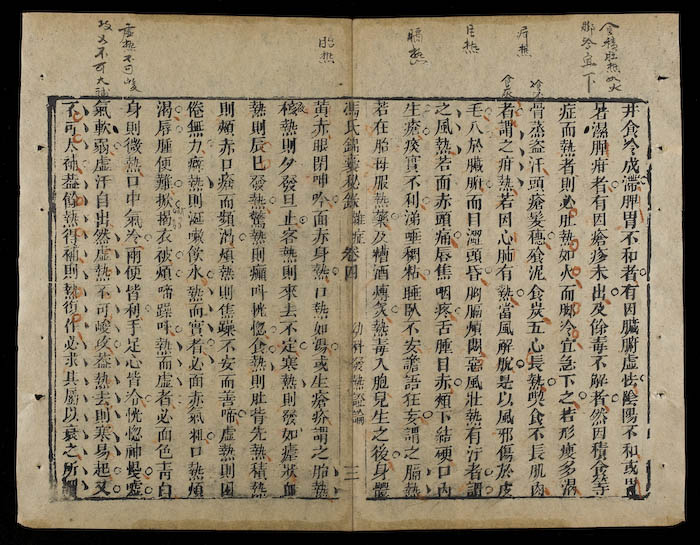 食積肚熱如火
腳冷宜下
疳熱
目熱
膈熱
胎熱
虛熱不可峻
攻又不可大補
井食冷成滯脾胃不和者有因臟腑虛怯陰陽不和或
暑濕脾疳者有因瘡疹未出及餘毒不解者然因積食等
症而熱者則必肚熱如火而腳冷宜急下之若形瘦多渴
骨蒸盜汗頭瘡髮穗飡泥食炭五心長熱喫食不長肌肉
者謂之疳熱若因心肺有熱當風解脫是以風邪傷於皮
毛入於臟腑而目澀頭昏胸膈煩悶惡風壯熱有汗者謂
之風熱若面赤頭痛唇焦咽疼舌腫目赤頰下結硬口內
生瘡痰實不利涕唾稠粘睡臥不安譫語狂妄謂之膈熱
若在胎母服熱藥及糟酒煿炙熱毒入胞兒生之後身體
馮氏錦囊秘錄 雜症 卷四 幼科發熱證論 三
黃赤眼閉呻吟面赤身熱口熱如湯或生瘡疥謂之胎熱
積熱則夕發旦止客熱則來去不定寒熱則發如瘧狀血
熱則辰巳發熱驚熱則癲叫恍惚食熱則肚背先熱積熱
則頰赤口瘡而頻渴煩熱則焦躁不安而善啼虛熱則困
倦無力瘀熱則涎嗽飲水熱而實者必面赤氣粗口熱煩
渴唇腫便難掀揭衣被煩啼躁呼熱而虛者必面色青白
身則微熱口中氣冷兩便皆利手足心皆冷恍惚神慢噓
氣軟弱虛汗自出然虛熱不可峻攻蓋熱去則寒易起又
不可大補蓋餘熱得補則熱復作必求其屬以衰之所